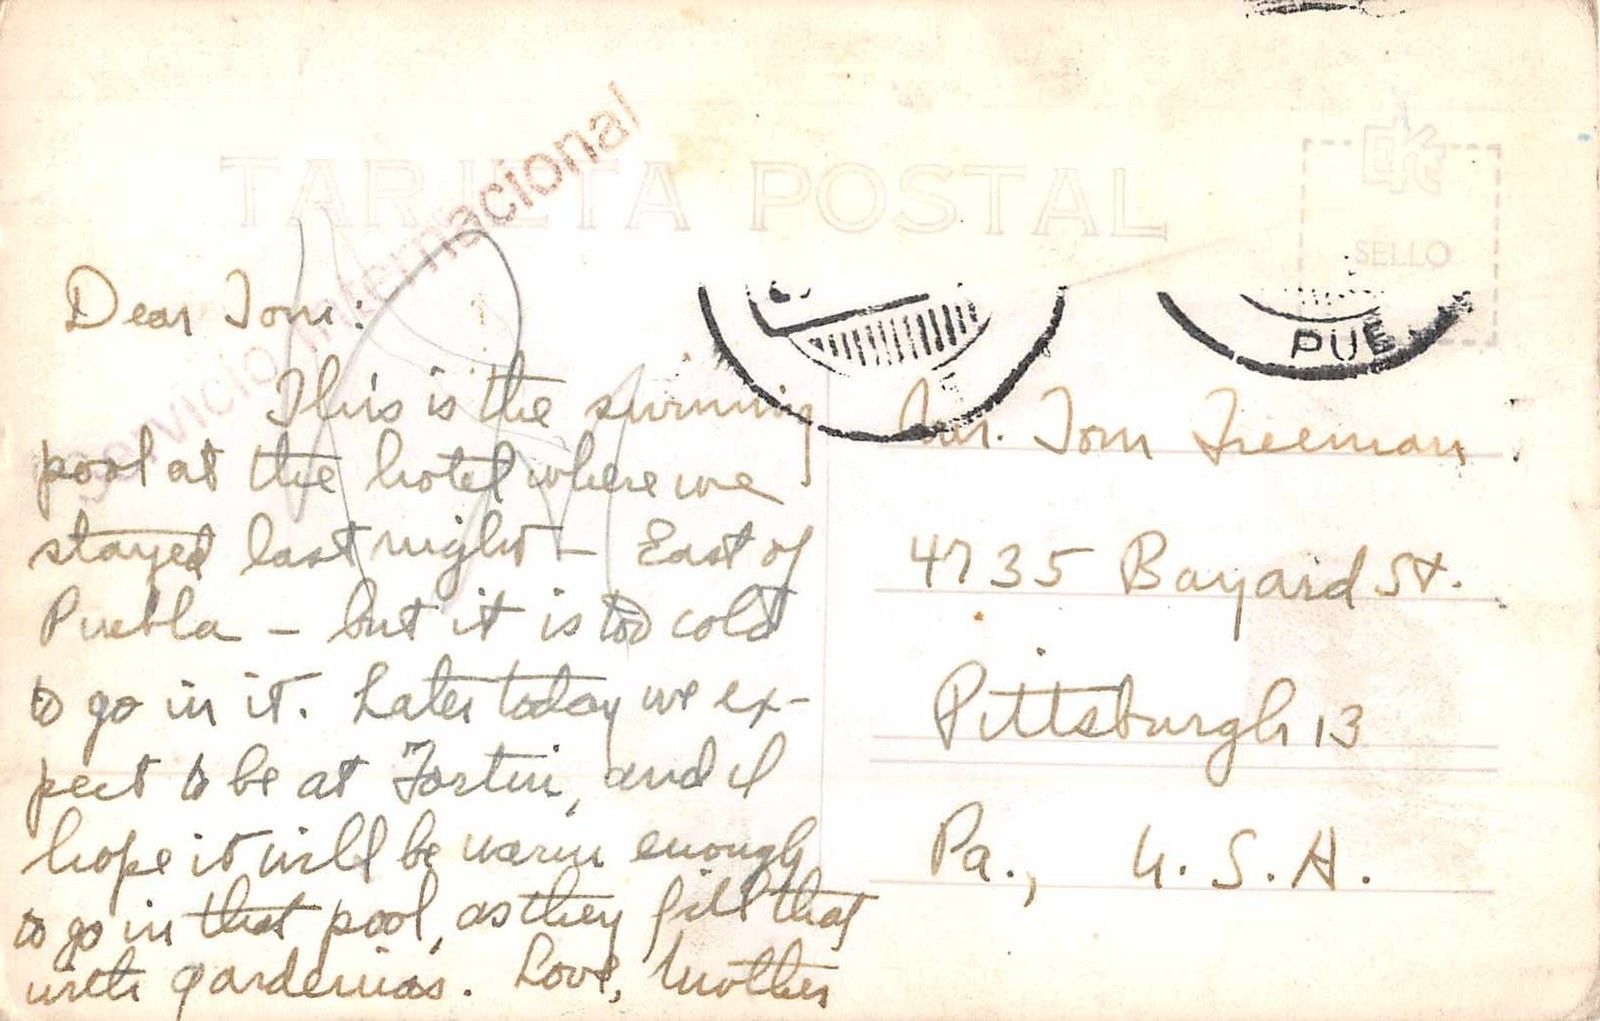 TARJETA POSTAL
Servicio Internacional
SELLO
PUE
Dear Tom:
This is the swimming
pool at the hotel where we
stayed last night – East of
Puebla – but it is too cold
to go in it. Later today we ex-
pect to be at Fortin, and I
hope it will be warm enough
to go in that pool, as they fill that
with gardenias. Love, Mother
Mr. Tom Freeman
4735 Bayard St.
Pittsburgh 13
Pa., U.S.A.